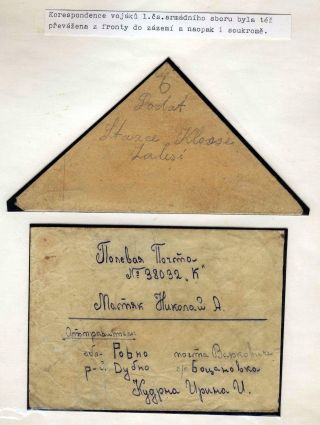 Korespondence vojáků 1.čs.armádního sboru byla též
převážena z fronty do zázemí a naopak i soukromě.
Podat
Stazce Klosse
Zalesí
Полевая Почта
№ 38032 „К"
Мастяк Николай А.
Отправитель:
обл- Ровно почта Варковичи
р-н Дубно с/с Боцановка
Кудрна Ирина И.